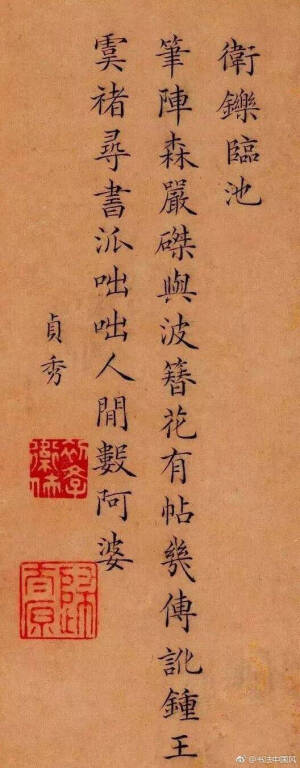 衛鑠臨池
筆陣森嚴磔與波簪花有帖幾傳訛鍾王
虞褚尋書派咄咄人閒數阿婆
貞秀
@书法中国风